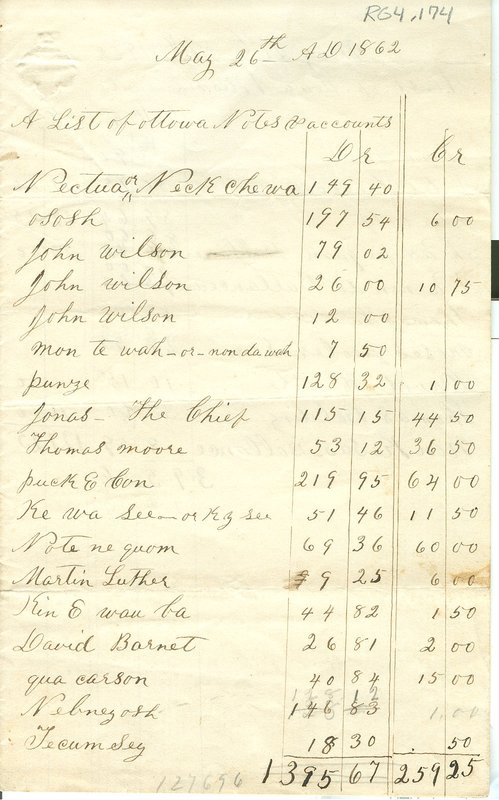 RG4.174
May 26th AD 1862
A List of ottowa Notes & accounts
Dr Cr
Nectua or Neck che wa 149 40
ososh 197 54 6 00
John wilson 79 02
John wilson 26 00 10 75
John wilson 12 00
mon te wah - or - non da wah 7 50
punze 128 32 1 00
Jonas - The Chief 115 15 44 50
Thomas moore 53 12 36 50
puck E Con 219 95 64 00
Ke wa see - or Kz see 51 46 11 50
Note ne quom 69 36 60 00
Martin Luther 9 25 6 00
Kin E wau ba 44 82 1 50
David Barnet 26 81 2 00
qua carson 40 84 15 00
128 12
Nebnezosh 146 83 1,00
Tecumsey 18 30 50
1395 67 259 25
127696